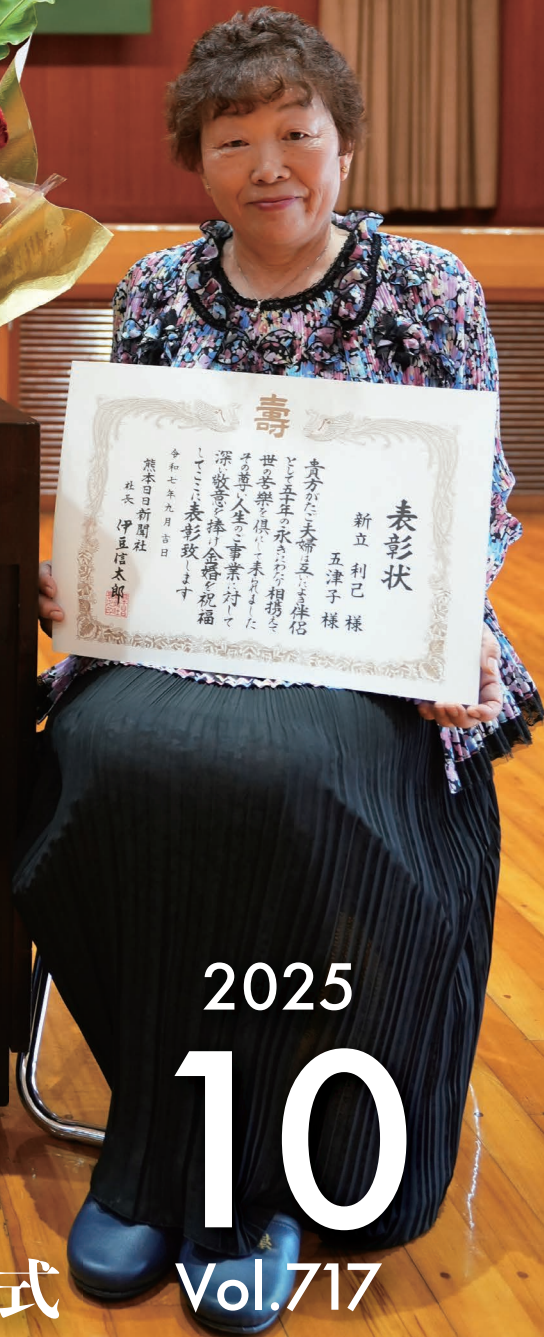 壽
表彰状
新立 利己 様
五津子 様
貴方がたご夫婦は互いによき伴侶
として五十年の永きにわたり相携えて
世の苦楽を倶にして来られました
その尊い人生のご事業に対して
深い敬意を捧げ金婚を祝福
してここに表彰致します
令和七年九月吉日
熊本日日新聞社
社長 伊豆信太郎
2025
10
Vol.717
式